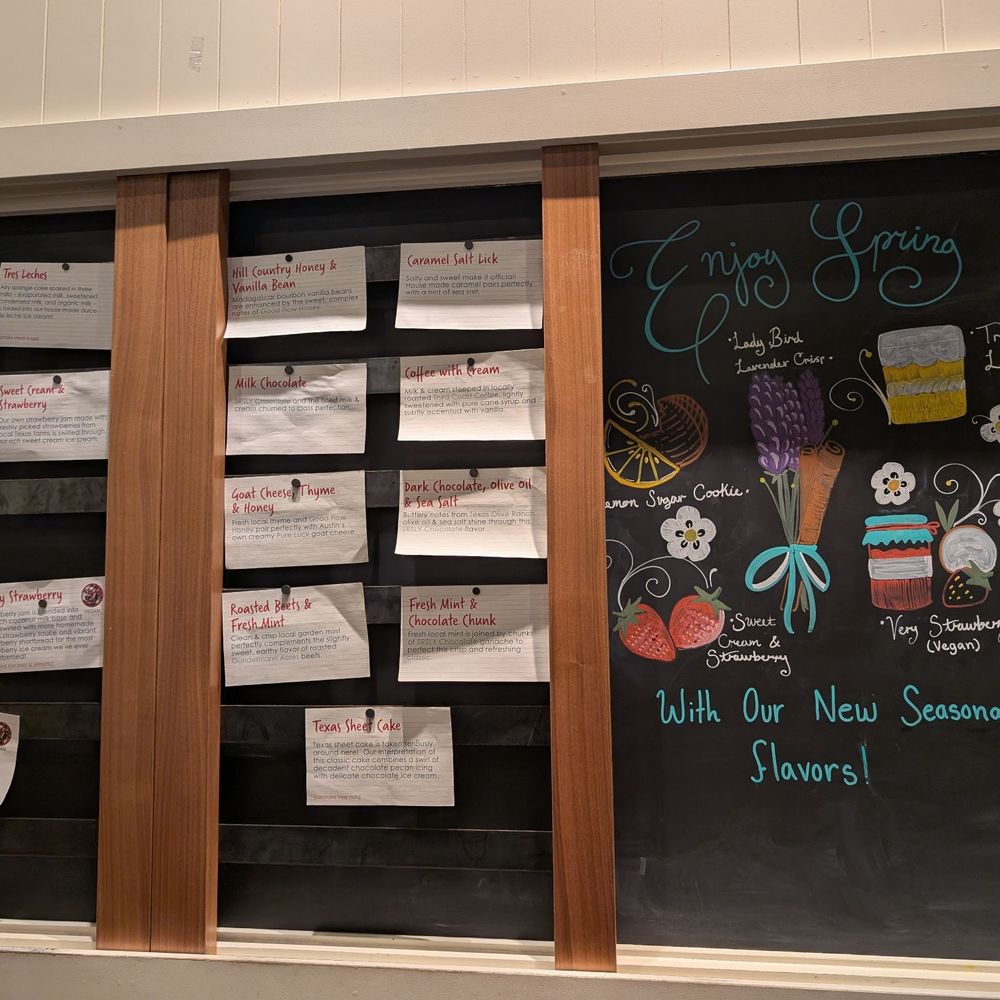 Tres Leches
Airy sponge cake soaked in three
milks - evaporated milk, sweetened
condensed milk, and organic milk -
is folded into our house made dulce
de leche ice cream!
Sweet Cream &
Strawberry
Our own strawberry jam made with
freshly picked strawberries from
local Texas farms is swirled through
our rich sweet cream ice cream.
y Strawberry
berry jam is blended into
ch coconut milk base and
swirled with more homemade
strawberry sauce and vibrant
berry shortbread for the most
berry ice cream we've ever
VEGAN
Hill Country Honey &
Vanilla Bean
Madagascar bourbon vanilla beans
are enhanced by the sweet, complex
notes of Good Flow Honey.
Milk Chocolate
SRSLY Chocolate and the finest milk &
cream churned to class perfection.
Goat Cheese, Thyme
& Honey
Fresh local thyme and Good Flow
Honey pair perfectly with Austin's
own creamy Pure Luck goat cheese
Roasted Beets &
Fresh Mint
Clean & crisp local garden mint
perfectly complements the slightly
sweet, earthy flavor of roasted
Gundermann Acres beets.
Caramel Salt Lick
Salty and sweet make it official!
House made caramel pairs perfectly
with a hint of sea salt.
Coffee with Cream
Milk & cream steeped in locally
roasted Third Coast Coffee, lightly
sweetened with pure cane syrup and
subtly accented with vanilla.
Dark Chocolate, Olive Oil
& Sea Salt
Buttery notes from Texas Olive Ranch
olive oil & sea salt shine through this
SRSLY Chocolate flavor.
Fresh Mint &
Chocolate Chunk
Fresh local mint is joined by chunks
of SRSLY Chocolate ganache to
perfect this crisp and refreshing
classic.
Texas Sheet Cake
Texas sheet cake is taken seriously
around here! Our interpretation of
this classic cake combines a swirl of
decadent chocolate pecan icing
with delicate chocolate ice cream.
(contains tree nuts)
Enjoy Spring
•Lady Bird
Lavender Crisp•
Tr
L
emon Sugar Cookie•
•Sweet
Cream &
Strawberry
•Very Strawberr
(Vegan)
With Our New Seasona
flavors!